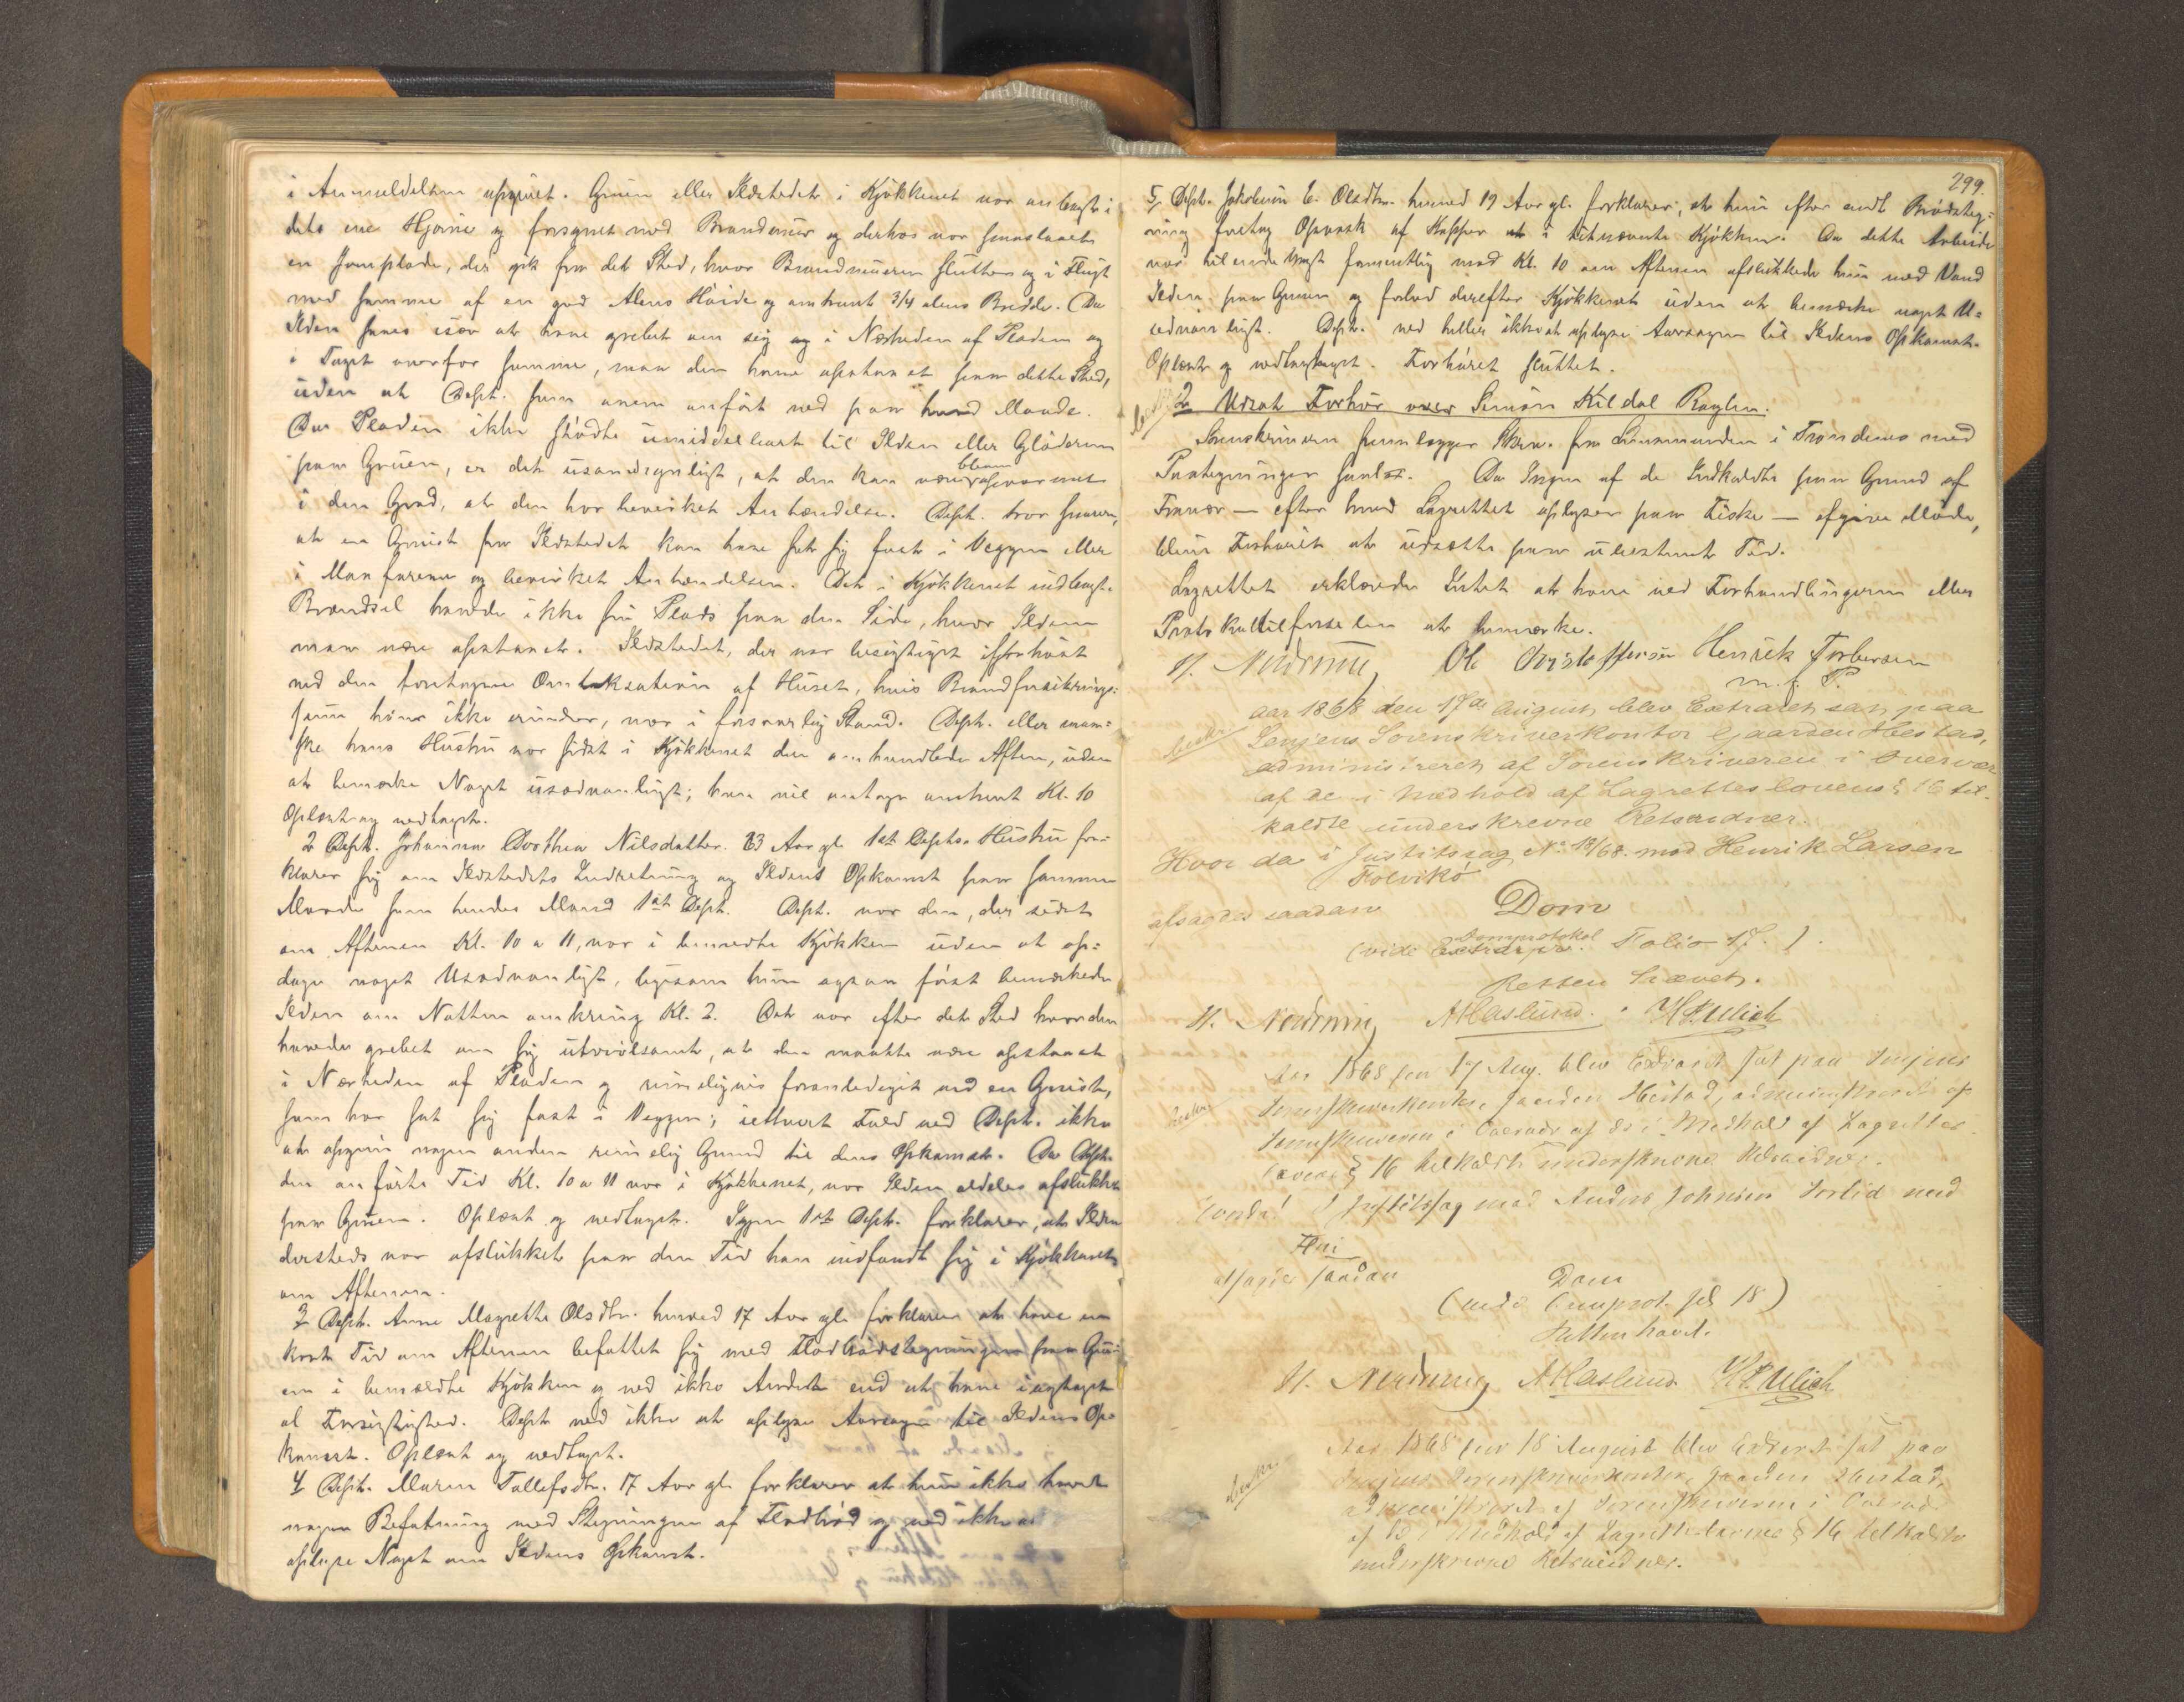 i Anmeldelsen opgivet. Gruen eller Ildstedet i Kjøkkenet var anbragt i
dets ene Hjørne og forsynet med Brandmuur og derhos var fraaslaaet
en Jernplade, der gik fra det Sted, hvor Brandmuuren sluttes og i Flugt
med samme af en god Alens Høide og omtrent 3/4 alens Bredde. Da
Ilden synes især at have grebet om sig i Nærheden af Pladen og
i Taget ovenfor samme, maa den have opstaaet paa dette Sted,
uden at Dept. som oven anført ved paa hvad Maade.
Da Pladen ikke stødte umiddelbart til Ilden eller Gløderne
paa Gruen, er det usandsynligt, at den kan være bleven opvarmet
i den Grad, at den har bevirket Antændelse. Dept. tror snarere,
at en Gnist fra Ildstedet kan have sat sig fast i Veggen eller
i Maafarene og bevirket Antændelsen. Det i Kjøkkenet indbragte
Brændsel havde ikke sin Plads paa den Side, hvor Ilden
maa være opstaaet. Ildstedet, der var besigtiget ifjorhøst
ved den foretagne Omtaksation af Huset, hvis Brandforsikrings-
sum han ikke erindrer, var i forsvarlig Stand. Dept. eller maa-
ske hans Hustru var sidst i Kjøkkenet den omhandlede Aften, uden
at bemærke Noget usædvanligt; han vil antage omtrent Kl. 10
Oplæst og vedtaget.
2 Dept. Johanna Dorthea Nilsdatter 23 Aar gl. 1ste Depts. Hustru for-
klarer sig om Ildstedets Indretning og Ildens Opkomst paa samme
Maade som hendes Mand 1ste Dept. Dept. var den, der sidst
om Aftenen Kl. 10 a 11, var i bemeldte Kjøkken uden at op-
dage noget Usædvanligt, ligesom hun ogsaa først bemærkede
Ilden om Natten omkring Kl. 2. Det var efter det Sted hvor den
havde grebet om sig utvivlsomt, at den maatte være opstaaet
i Nærheden af Pladen og rimeligvis foranlediget ved en Gnist,
som har sat sig fast i Veggen; iethvert Fald ved Dept. ikke
at opgive nogen anden rimelig Grund til dens Opkomst. Da Dept.
den anførte Tid Kl. 10 a 11 var i Kjøkkenet, var Ilden aldeles afslukket
paa Gruen. Oplæst og vedtaget. Igjen 1ste Dept. forklarer, at Ilden
dersteds var afslukket paa den Tid han indfandt sig i Kjøkkenet
om Aftenen.
3 Dept. Anne Magrethe Olsdtr. henved 17 Aar gl. forklarer at have en
kort Tid om Aftenen befattet sig med Fladbrødstegningen paa Gru-
en i bemeldte Kjøkken og ved ikke Andet end at have iagttaget
al Forsigtighed. Dept. ved ikke at oplyse Aarsagen til Ildens Op-
komst. Oplæst og vedtaget.
4 Dept. Maren Tollefsdtr. 17 Aar gl. forklarer at hun ikke havde
nogen Befatning med Stegningen af Fladbrød og ved ikke at
oplyse Noget om Ildens Opkomst.
299.
5 Dept. Jakobine E. Olsdtr. henved 19 Aar gl. forklarer, at hun efter endt Brødsteg-
ning foretog Opvask af Kopper i bemeldte Kjøkken. Da dette Arbeide
var tilendebragt formentlig mod Kl. 10 om Aftenen afslukkede hun med Vand
Ilden paa Gruen og forlod derefter Kjøkkenet uden at bemærke noget U-
sædvanligt. Dept. ved heller ikke at oplyse Aarsagen til Ildens Opkomst.
Oplæst og vedtaget. Forhøret sluttet.
2 Udsat Forhør over Simon Kildal
Sorenskriveren fremlægger Skriv. fra Lensmanden i Trondenes med
Paategninger saal. Da Ingen af de Indkaldte paa Grund af
Fravær — efter hvad Lagrettet oplyser paa Fiske — afgiver Møde,
blev Forhøret at udsætte paa ubestemt Tid.
Lagrettet erklærede Intet at have ved Forhandlingerne eller
Protokoltilførselen at bemærke.
H. Nordrum Ole Kristoffersen Henrik Torbersen
m. f. P.
beskr.
Aar 1868 den 17de August blev Extraret sat paa
Senjens Sorenskriverkontor Gaarden Hestad,
administreret af Sorenskriveren i Overvær
af de i Medhold af Lagretteslovens § 16 til-
kaldte underskrevne Retsvidner.
Hvor da i Justitssag No 18/68 mod Henrik Larsen
Tolvikø
afsagdes saadan Dom
(vide Domprotokol Folio 17.).
Retten hævet.
H. Nordrum A Haslund. H Ulich
beskr.
Aar 1868 den 17 Aug. blev Extraret sat paa Senjens
Sorenskriverkontor, Gaarden Hestad, administreret af
Sorenskriveren i Overvær af de i Medhold af Lagrettes-
lovens § 16 tilkaldte underskrevne Retsvidner.
Hvorda i Justitssag mod Anders Johnsen
afsagdes saadan Dom
(vide Domprot. fol 18)
Retten hævet.
H. Nordrum A Haslund H Ulich
beskr.
Aar 1868 den 18 August blev Extraret sat paa
Senjens Sorenskriverkontor, Gaarden Hestad,
administreret af Sorenskriveren i Overvær
af de i Medhold af Lagretteslovens § 16 tilkaldte
underskrevne Retsvidner.